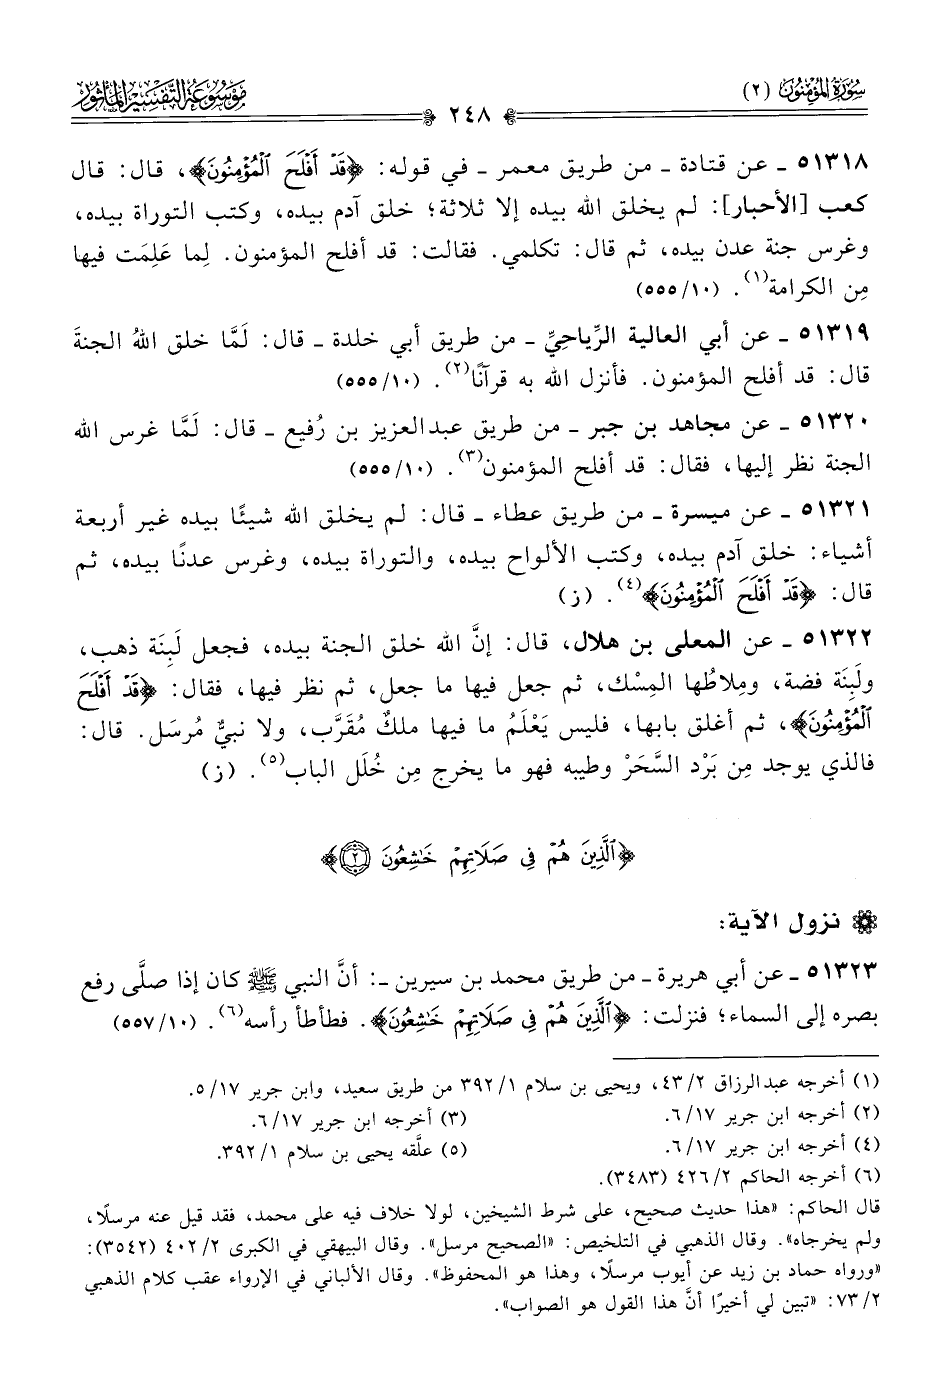 سُورَةُ المُؤْمِنُونَ (٢)
٢٤٨
مَوْسُوعَةُ التَّفْسِيرِ المَأْثُورِ
٥١٣١٨ ـ عن قتادة ـ من طريق معمر ـ في قوله: ﴿قَدْ أَفْلَحَ ٱلْمُؤْمِنُونَ﴾، قال: قال
كعب [الأحبار]: لم يخلق الله بيده إلا ثلاثة؛ خلق آدم بيده، وكتب التوراة بيده،
وغرس جنة عدن بيده، ثم قال: تكلمي. فقالت: قد أفلح المؤمنون. لِما عَلِمَت فيها
مِن الكرامة(١). (١٠/ ٥٥٥)
٥١٣١٩ ـ عن أبي العالية الرِّياحِيِّ ـ من طريق أبي خلدة ـ قال: لَمَّا خلق اللهُ الجنةَ
قال: قد أفلح المؤمنون. فأنزل الله به قرآنًا(٢). (١٠/ ٥٥٥)
٥١٣٢٠ ـ عن مجاهد بن جبر ـ من طريق عبدالعزيز بن رُفيع ـ قال: لَمَّا غرس الله
الجنة نظر إليها، فقال: قد أفلح المؤمنون(٣). (١٠/ ٥٥٥)
٥١٣٢١ ـ عن ميسرة ـ من طريق عطاء ـ قال: لم يخلق الله شيئًا بيده غير أربعة
أشياء: خلق آدم بيده، وكتب الألواح بيده، والتوراة بيده، وغرس عدنًا بيده، ثم
قال: ﴿قَدْ أَفْلَحَ ٱلْمُؤْمِنُونَ﴾(٤). (ز)
٥١٣٢٢ ـ عن المعلى بن هلال، قال: إنَّ الله خلق الجنة بيده، فجعل لَبِنَة ذهب،
ولَبِنَة فضة، ومِلاطُها المِسْك، ثم جعل فيها ما جعل، ثم نظر فيها، فقال: ﴿قَدْ أَفْلَحَ
ٱلْمُؤْمِنُونَ﴾، ثم أغلق بابها، فليس يَعْلَمُ ما فيها ملكٌ مُقَرَّب، ولا نبيٌّ مُرسَل. قال:
فالذي يوجد مِن بَرْد السَّحَرْ وطيبه فهو ما يخرج مِن خُلَل الباب(٥). (ز)
﴿ٱلَّذِينَ هُمْ فِى صَلَاتِهِمْ خَٰشِعُونَ ۝٢﴾
نزول الآية:
٥١٣٢٣ ـ عن أبي هريرة ـ من طريق محمد بن سيرين ـ: أنَّ النبي ﷺ كان إذا صلَّى رفع
بصره إلى السماء؛ فنزلت: ﴿ٱلَّذِينَ هُمْ فِى صَلَاتِهِمْ خَٰشِعُونَ﴾. فطأطأ رأسه(٦). (١٠/ ٥٥٧)
(١) أخرجه عبدالرزاق ٢/ ٤٣، ويحيى بن سلام ١/ ٣٩٢ من طريق سعيد، وابن جرير ١٧/ ٥.
(٢) أخرجه ابن جرير ١٧/ ٦. (٣) أخرجه ابن جرير ١٧/ ٦.
(٤) أخرجه ابن جرير ١٧/ ٦. (٥) علَّقه يحيى بن سلام ١/ ٣٩٢.
(٦) أخرجه الحاكم ٢/ ٤٢٦ (٣٤٨٣).
قال الحاكم: «هذا حديث صحيح، على شرط الشيخين، لولا خلاف فيه على محمد، فقد قيل عنه مرسلًا،
ولم يخرجاه». وقال الذهبي في التلخيص: «الصحيح مرسل». وقال البيهقي في الكبرى ٢/ ٤٠٢ (٣٥٤٢):
«ورواه حماد بن زيد عن أيوب مرسلًا، وهذا هو المحفوظ». وقال الألباني في الإرواء عقب كلام الذهبي
٢/ ٧٣: «تبين لي أخيرًا أنَّ هذا القول هو الصواب».